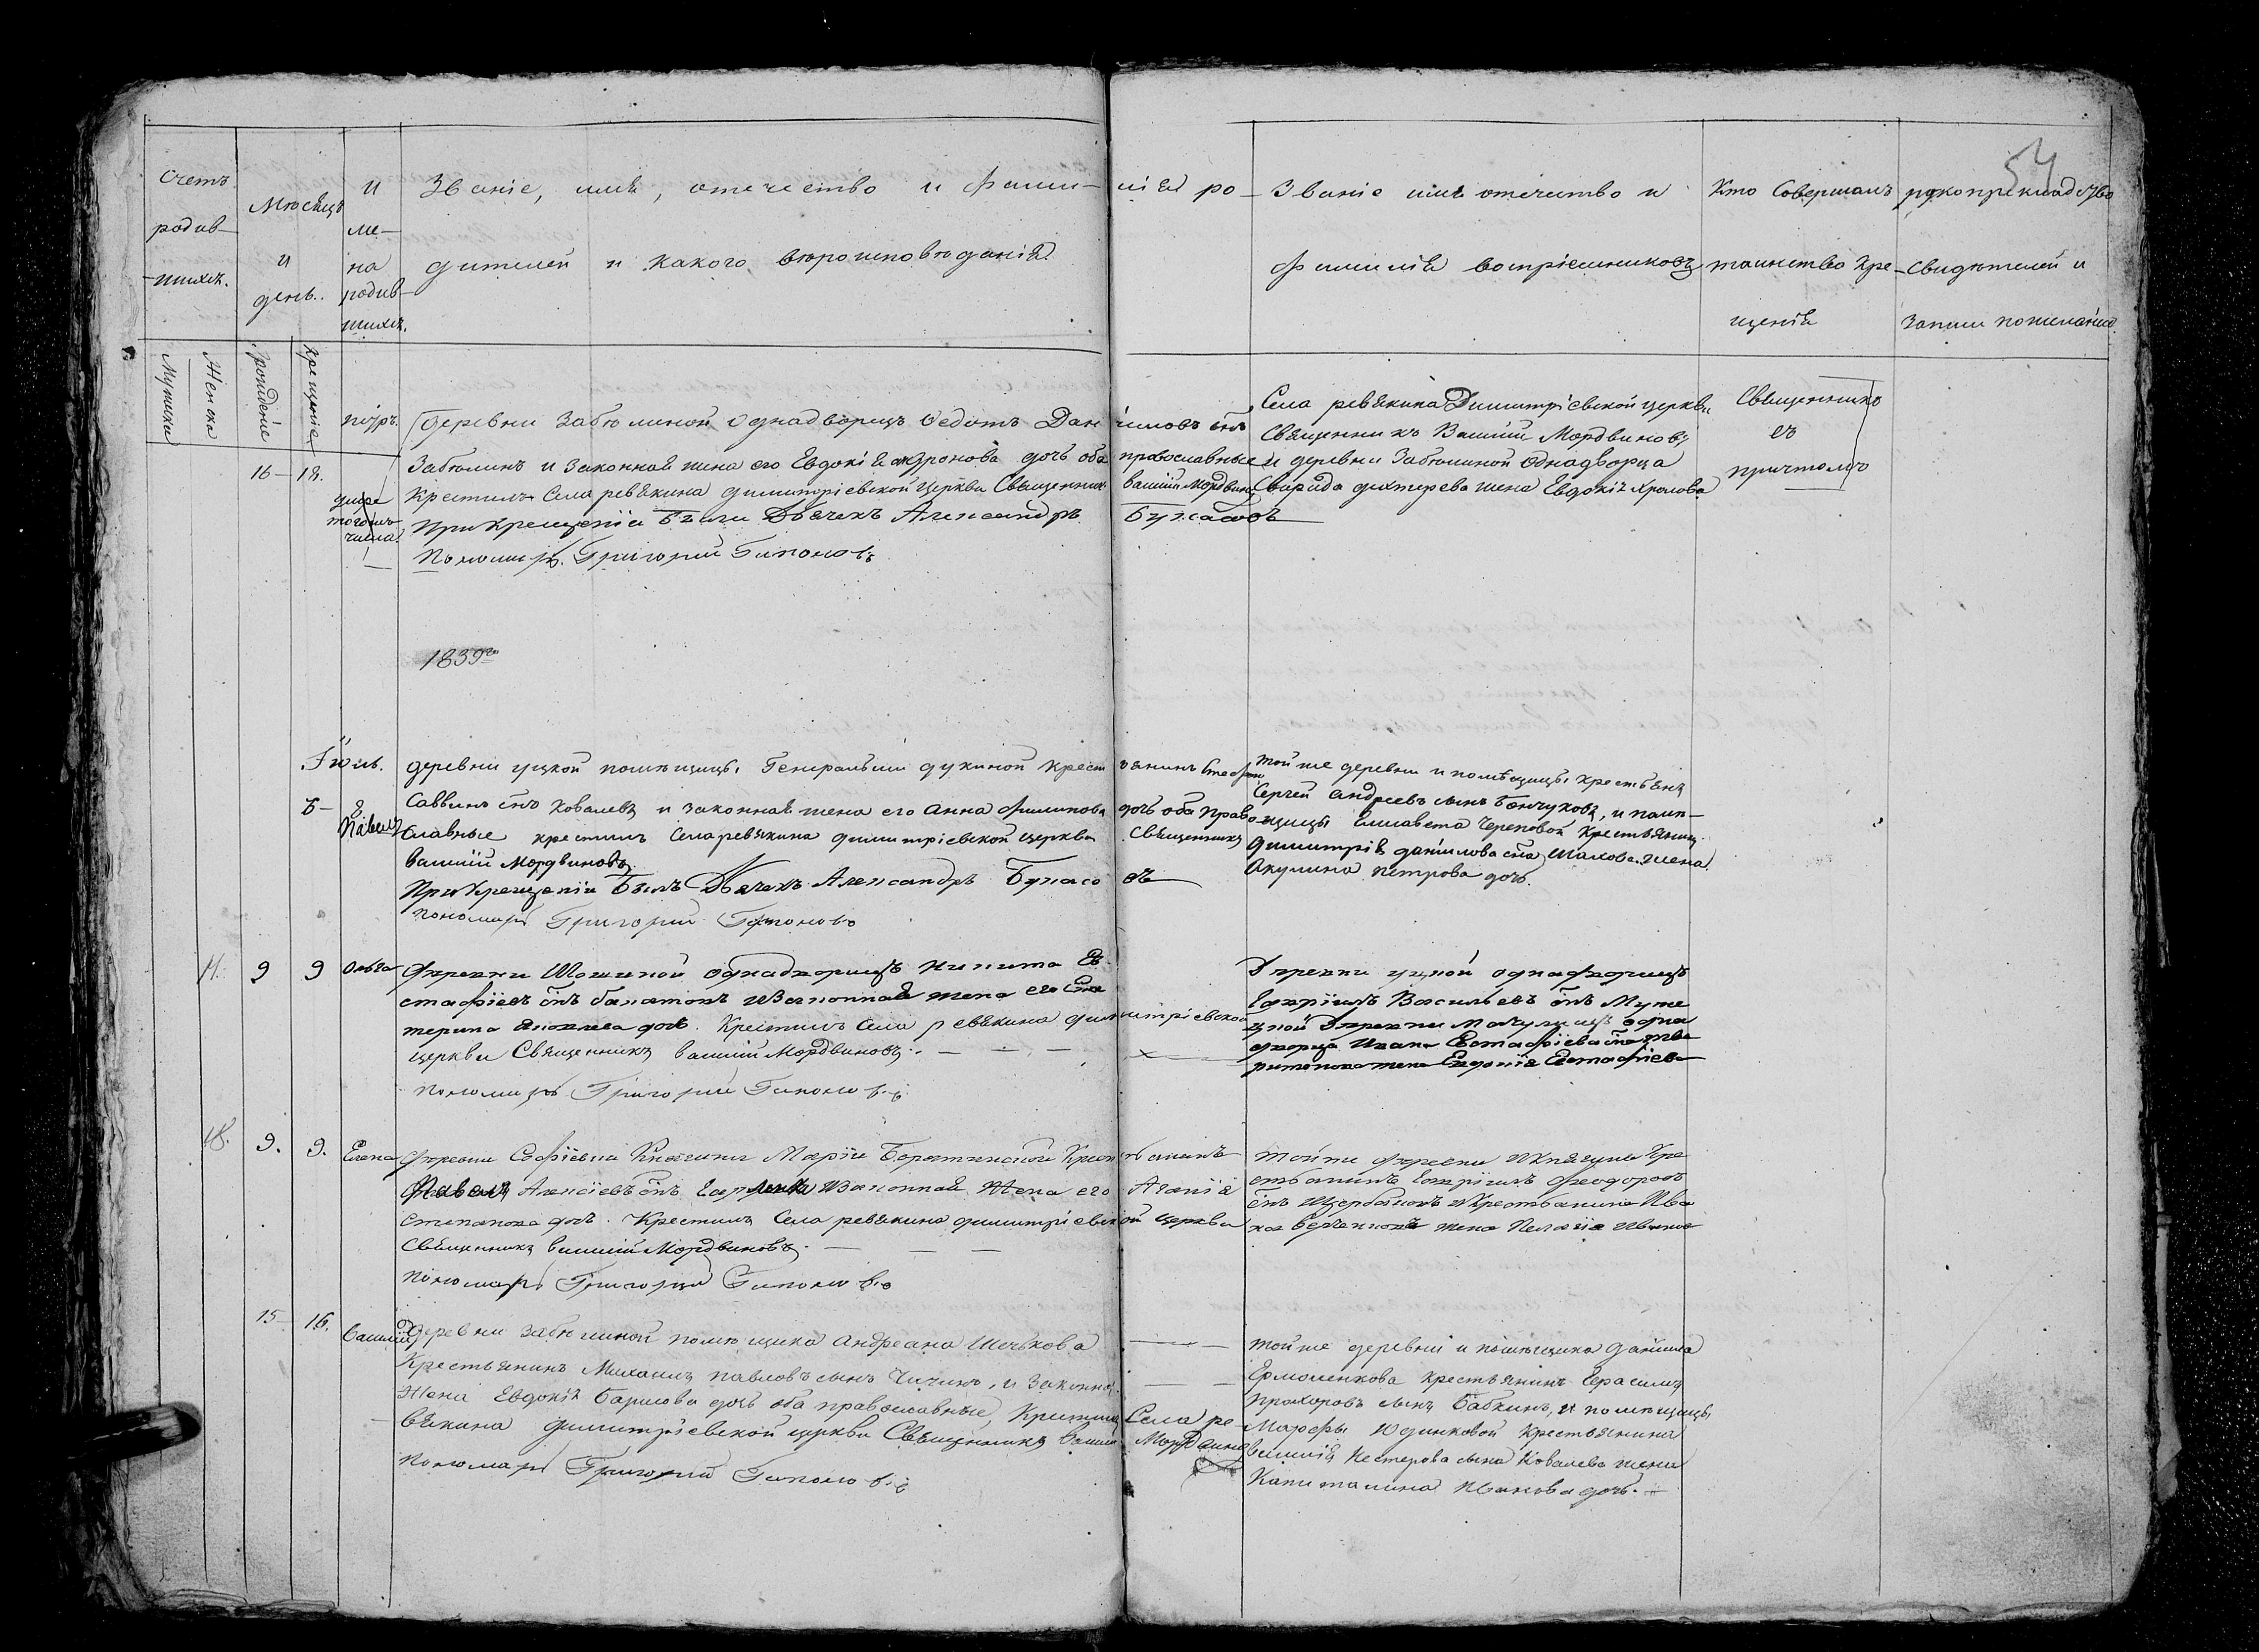 54
Счетъ родив-шихъ.
Мѣсяцъ и день.
И ме-на родив-шихъ.
Званіе, имя, отечество и фами-лія ро-
дителей и какого вѣроисповѣданія
Званіе имя отечество и
фамилія воспріемниковъ
Кто Совершалъ
таинство Кре-
щенія
рукоприкладство
свидѣтелей и
записи пожеланію.
Мужска
Женска
Рожденіе
Крещеніе
16 - 18.
того же числа
деревни Забѣлиной Однадворецъ Ѳедотъ Даніиловъ снъ
Забѣлинъ и законная жена его Евдокія дочь оба православные
Крестилъ Села ревякина димитріевской Церкви Священникъ василій Мордвин
При Крещеніи Были Дьячекъ Александръ Бунасовъ
Пономарь Григорій Гапоновъ
Села ревякина Димитріевской церкви
Священникъ Василій Мордвиновъ
и деревни Забѣлиной Однадворца
дихтерева жена Евдокія Хролова
Священникъ
съ
причтомъ
1839го
Іюль.
5 -
Павелъ
деревни уцкой помѣщицы Генеральши дукиной крестьянинъ Стефан
Саввинъ снъ Ковалевъ и законная жена его Анна Филипова дочь оба право
славные крестилъ Села ревякина димитріевской церкви Священникъ
василій Мордвиновъ
При Крещеніи Былъ Дьячекъ Александръ Бунасовъ
пономарь Григорій Гапоновъ
той же деревни и помѣщицы крестьянъ
Сергей Андреевъ сынъ Бончуковъ, и помѣ-
щицы Елисавета Череповой Крестьянин
димитрія данилова сна Шахова жена
Акулина петрова дочь.
9 9 Ольга
деревни Шошиной однадворецъ Никита Ев
стафіевъ снъ и Законная жена его Ека
терина Яковлева дочь. Крестилъ Села ревякина димитріевской
церкви Священникъ василій Мордвиновъ. - - -
пономарь Григорій Гапоновъ
Деревни уцкой однадворецъ
Гавріилъ Васильевъ снъ
Деревни одна
дворца Ивана Евстафіева сна
жена Евдокія Евстафіева
18. 9. 9. Елена
деревни Софіевки Княгини Маріи Борятинской Крестьянинъ
Павелъ Алексіевъ снъ и Законная жена его Агапія
Степанова дочь. Крестилъ Села ревякина димитріевской церкви
Священникъ василій Мордвиновъ. - - -
пономарь Григорій Гапоновъ
той же деревни и Княгини Кре
стьянинъ Гавріилъ Феодоровъ
снъ Щербаковъ и Крестьянина Ива
на жена Пелагія Иванова
15 - 16. Василій
деревни Забѣлиной помѣщика Андреана Шечкова
Крестьянинъ Михаилъ павловъ сынъ Чичинъ, и законна
жена Евдокія Барисова дочь оба православные, Крестилъ Села ре-
вякина димитріевской церкви Священникъ василій Мордвинов
пономарь Григорій Гапоновъ
той же деревни и помѣщика данила
Ермоленкова крестьянинъ Герасимъ
прохоровъ сынъ Бабкинъ, и помѣщицы
Марфы Юдинковой крестьянина
василія Нестерова сына Ковалева жена
Капиталина Иванова дочь.